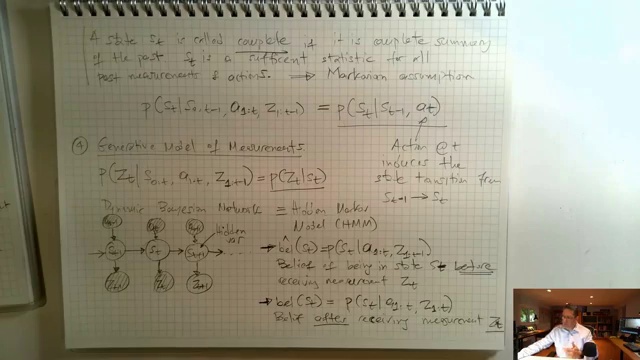 A state St is called complete if it is complete summary
of the past St is a sufficent statistic for all
past measurements & actions. ⟹ Markovian assumption
p(St|S0:t-1, a1:t, Z1:t-1) = p(St|St-1, at)
④ Generative Model of Measurements
p(Zt|S0:t, a1:t, Z1:t-1) = p(Zt|St)
Action @t
induces the
state transition from
St-1 → St
Dynamic Bayesian Network ≡ Hidden Markov
Model (HMM)
at-1 at at+1
Hidden
var
St-1 St St+1 ...
Zt-1 Zt Zt+1
→ bel(St) = p(St|a1:t, Z1:t-1)
Belief of being in state St before
receiving measurement Zt
→ bel(St) = p(St|a1:t, Z1:t)
Belief after receiving measurement Zt